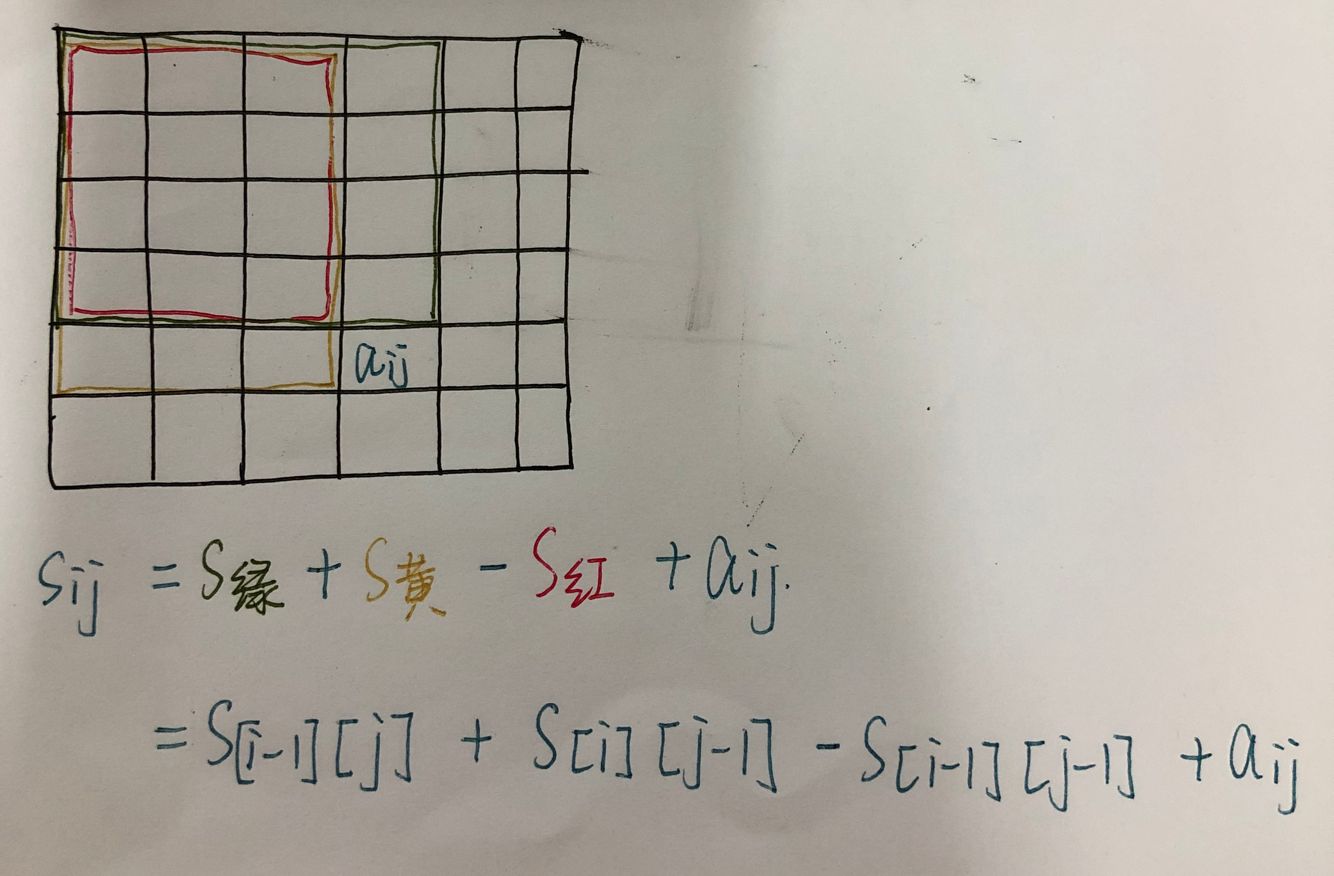 aij
Sij = S绿 + S黄 - S红 + aij.
= S[i-1][j] + S[i][j-1] - S[i-1][j-1] + aij